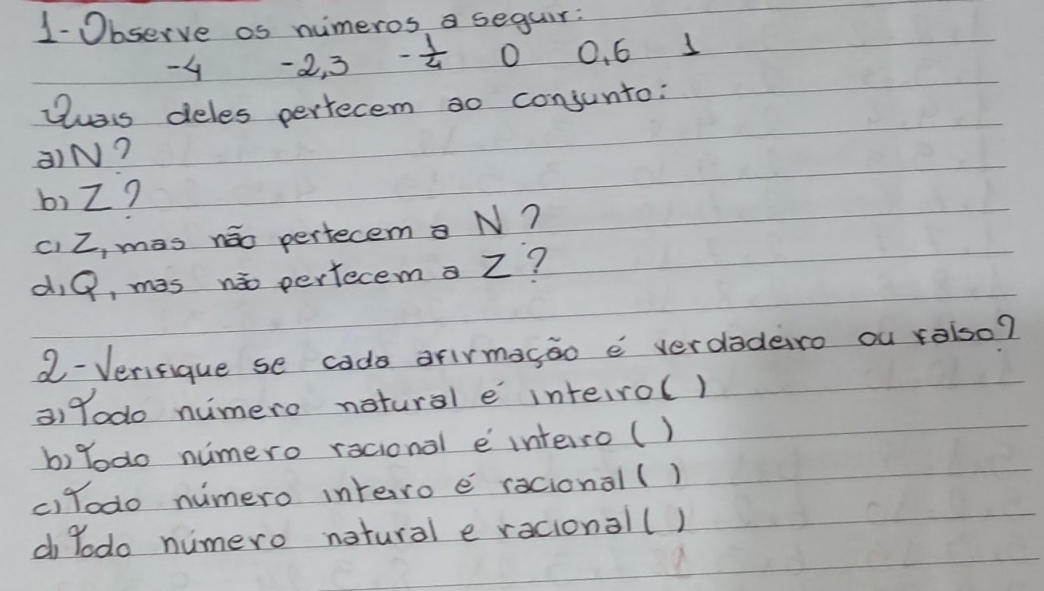 1-Observe os números a seguir:
-4 -2,3 -1/4 0 0,6 1
Quais deles pertecem ao conjunto:
a) N?
b) Z?
c) Z, mas não pertecem a N?
d) Q, mas não pertecem a Z?
2-Verifique se cada afirmação é verdadeiro ou falso?
a) Todo número natural é inteiro ( )
b) Todo número racional é inteiro ( )
c) Todo número inteiro é racional ( )
d) Todo número natural e racional ( )